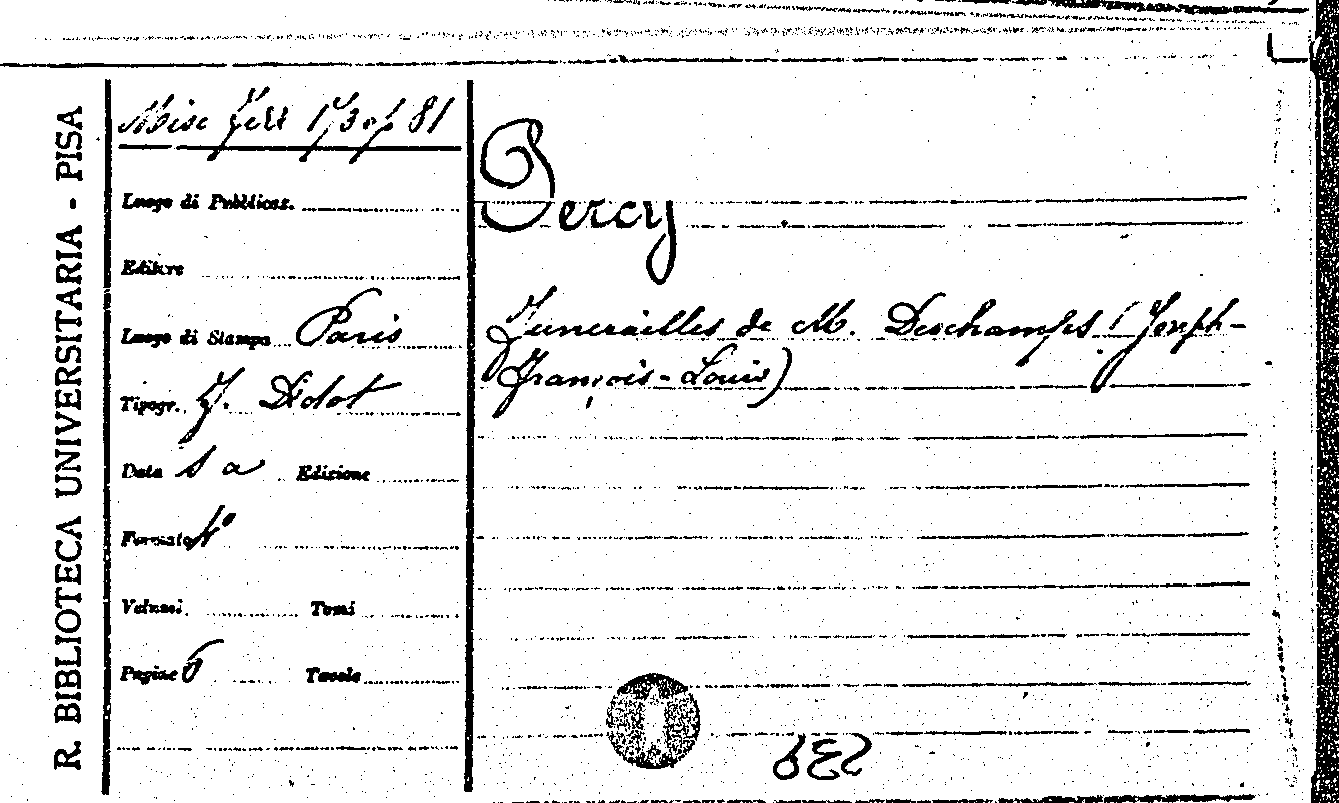 R. BIBLIOTECA UNIVERSITARIA - PISA
Misc 1/3 op 81
Luogo di Pubblicaz.
Editore
Luogo di Stampa Paris
Tipogr. J. Didot
Data s a Edizione
Formato
Volumi Tomi
Pagine 6 Tavole
Percy
Funerailles de M. Deschamps (Joseph-
François-Louis)